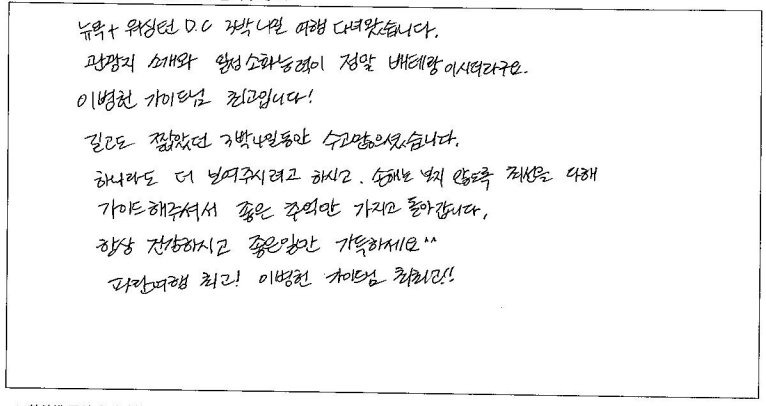 뉴욕+ 워싱턴 D.C 3박 4일 여행 다녀왔습니다.
관광지 소개와 일정소화능력이 정말 베테랑이시더라구요.
이병헌 가이드님 최고입니다!
길고도 짧았던 3박4일동안 수고많으셨습니다.
하나라도 더 보여주시려고 하시고. 손해는 보지 않도록 최선을 다해
가이드해주셔서 좋은 추억만 가지고 돌아갑니다.
항상 건강하시고 좋은일만 가득하세요^^
파란여행 최고! 이병헌 가이드님 최최고!!